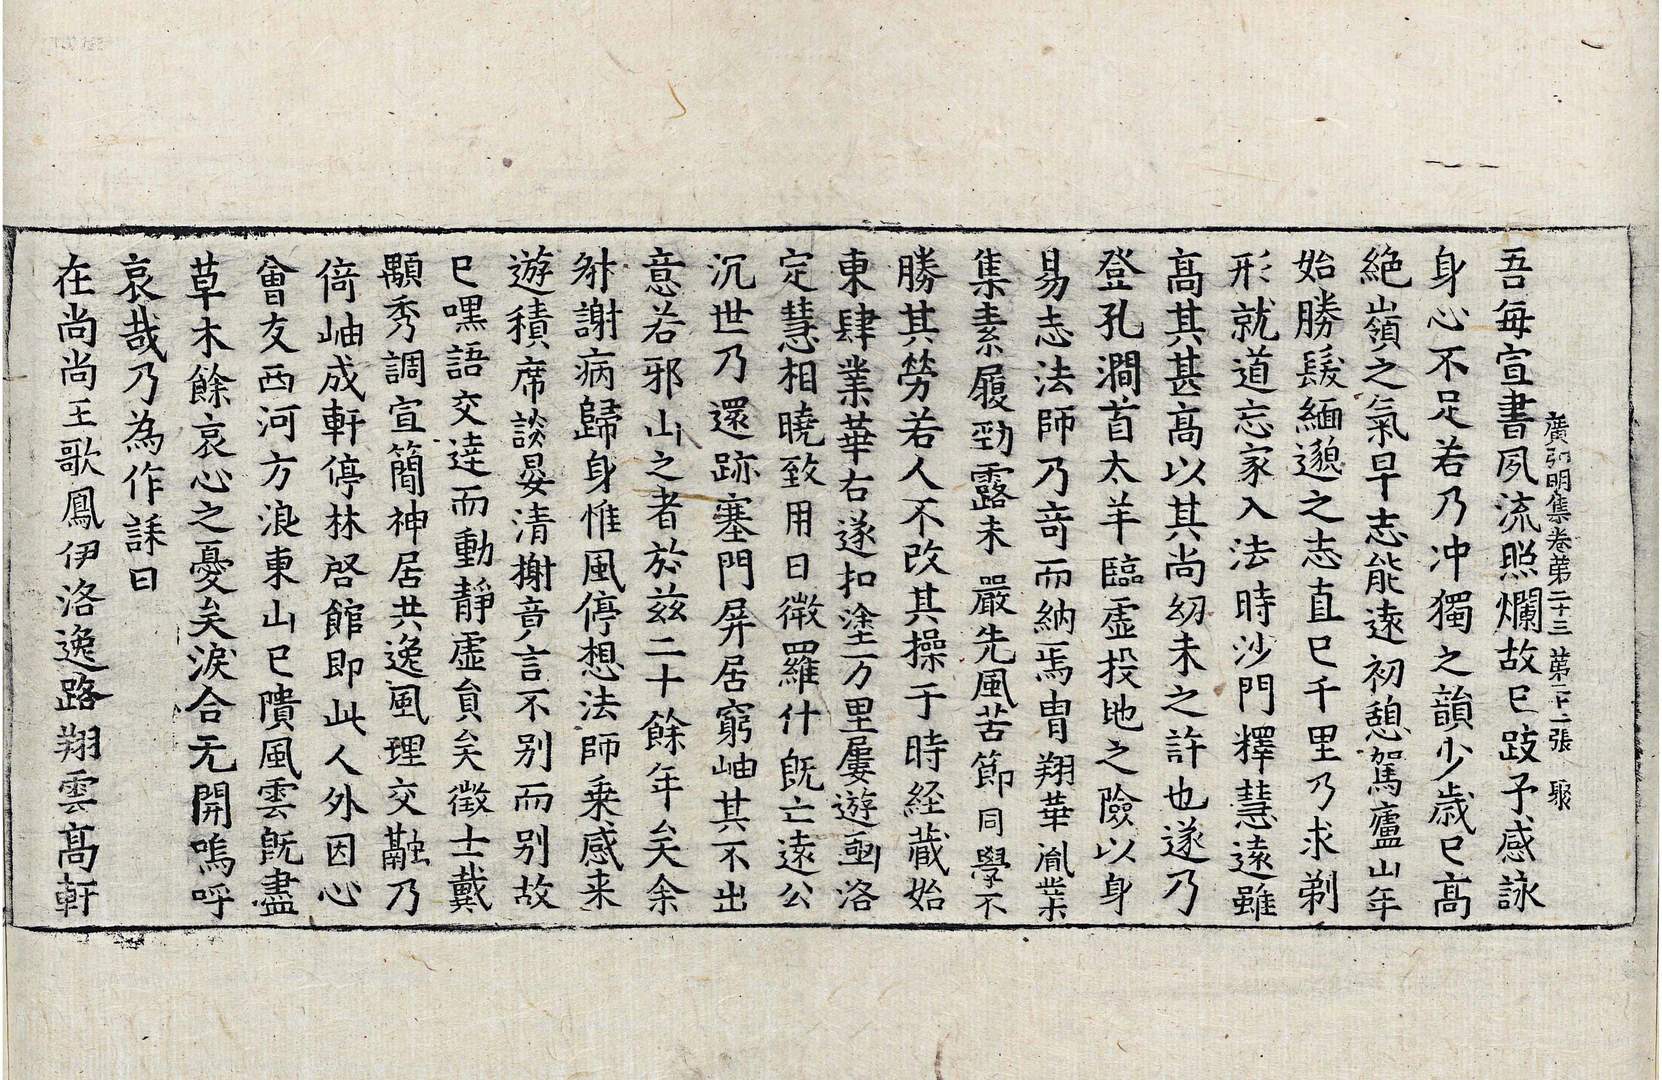 廣弘明集卷第二十三 第二十一張 聚
吾每宣書夙流照爛故已跂予感詠
身心不足若乃冲獨之韻少歲已髙
絶嶺之氣早志能遠初憩駕廬山年
始勝髮緬邈之志直已千里乃求剃
形就道忘家入法時沙門釋慧遠雖
髙其甚髙以其尚㓜未之許也遂乃
登孔澗首太羊臨虛投地之險以身
易志法師乃竒而納焉胄翔華胤業
集素履勁露未嚴先風苦節同學不
勝其勞若人不改其操于時経藏始
東肆業華右遂扣塗万里屢遊函洛
定慧相曉致用日徵羅什旣亡遠公
沉世乃還跡塞門屏居窮岫其不出
意若邪山之者於兹二十餘年矣余
躬謝病歸身惟風停想法師乗感来
遊積席談晏清榭音言不别而别故
已嘿語交逹而動靜虛貟矣徵士戴
顒秀調宣簡神居共逸風理交融乃
倚岫成軒停林啓館即此人外因心
會友西河方浪東山已隤風雲旣盡
草木餘哀心之憂矣淚合无開嗚呼
哀哉乃為作誄曰
在尚尚王歌鳳伊洛逸路翔雲髙軒